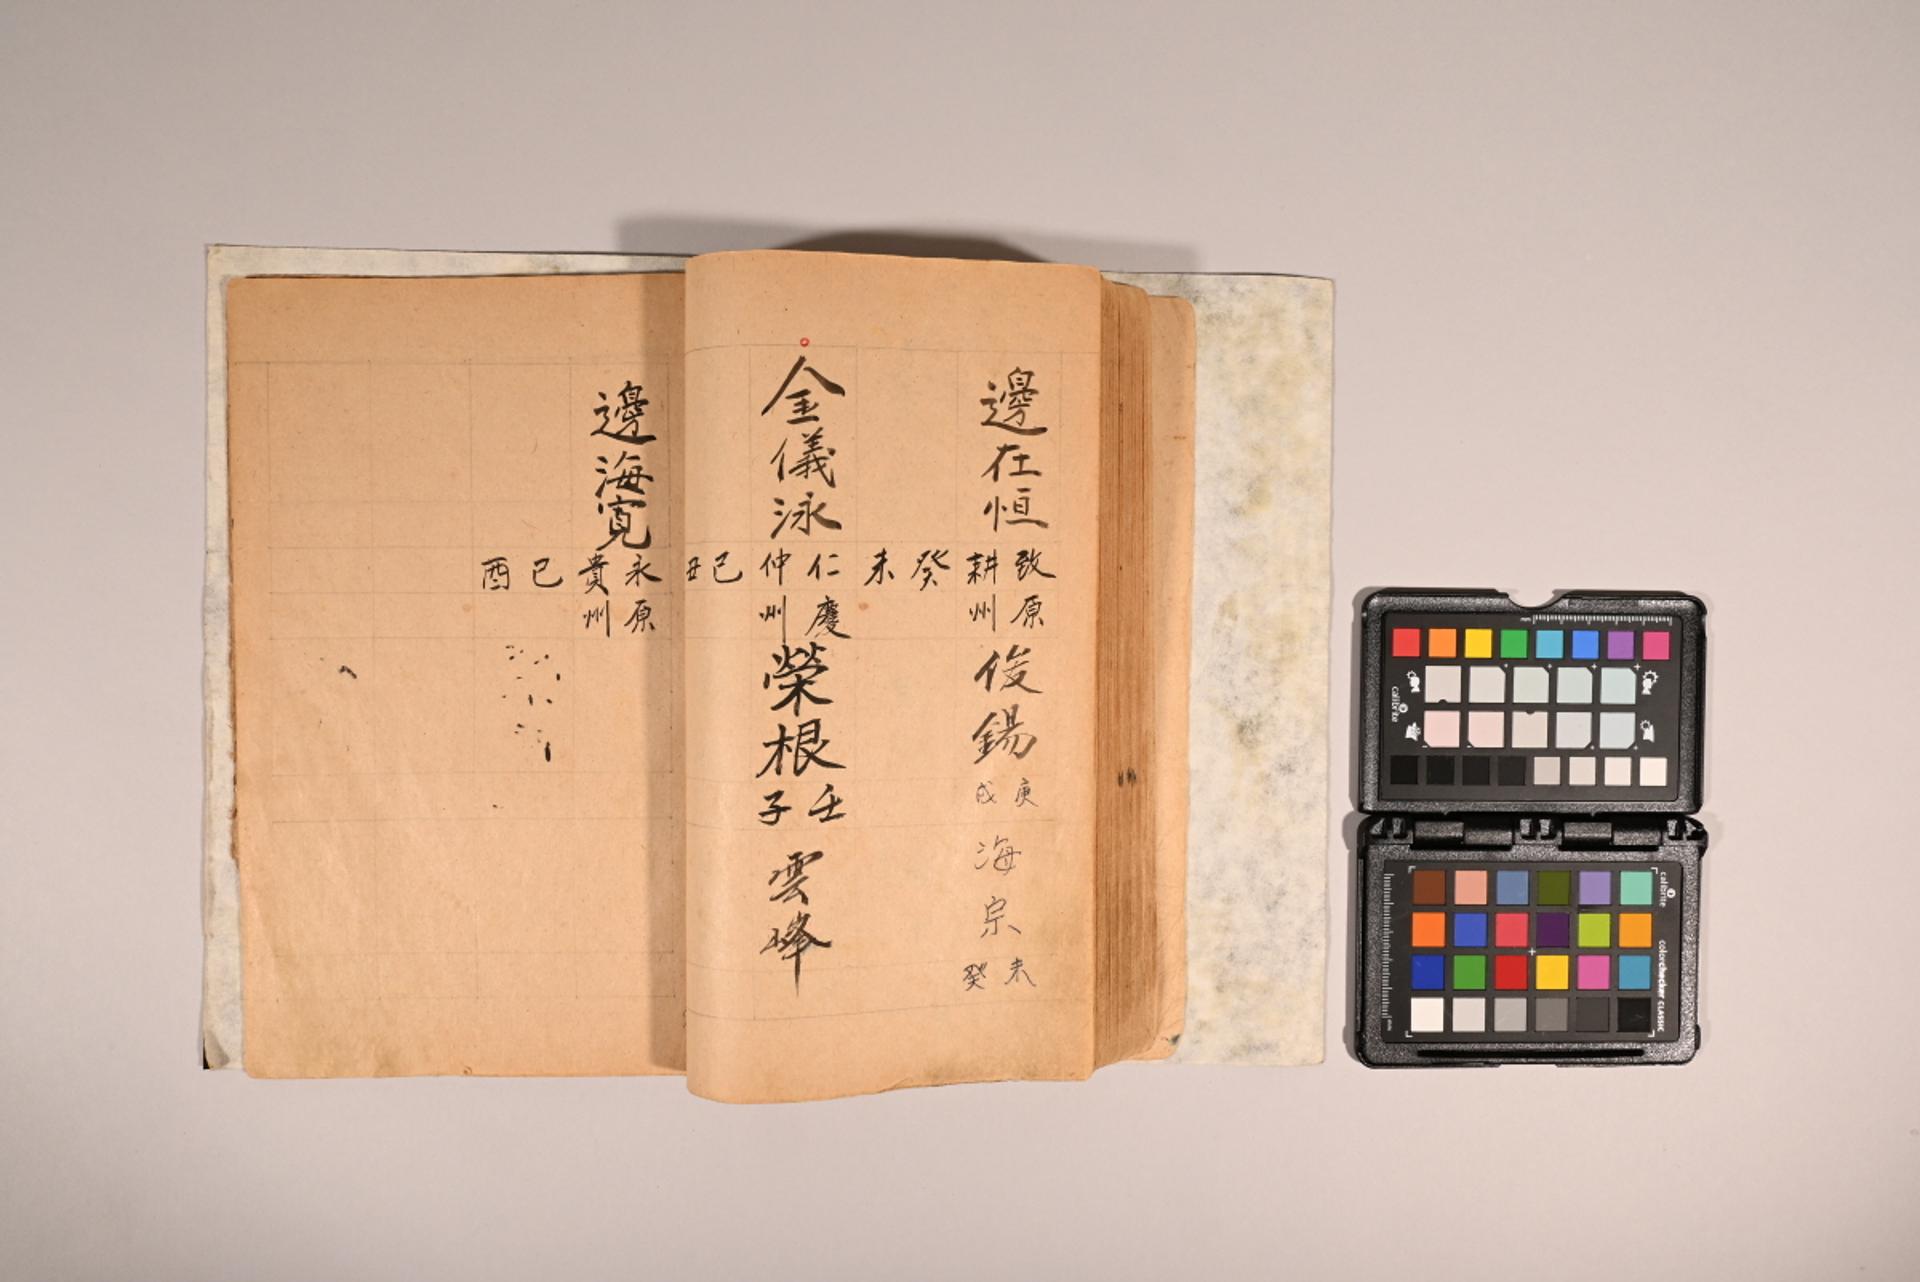 邊在恒
致耕
原州
癸未
俊錫
庚戌
海宗
癸未
金儀泳
仁仲
慶州
己丑
榮根
壬子
雲峰
邊海寬
永貴
原州
己酉
calibrite
calibrite
colorchecker CLASSIC